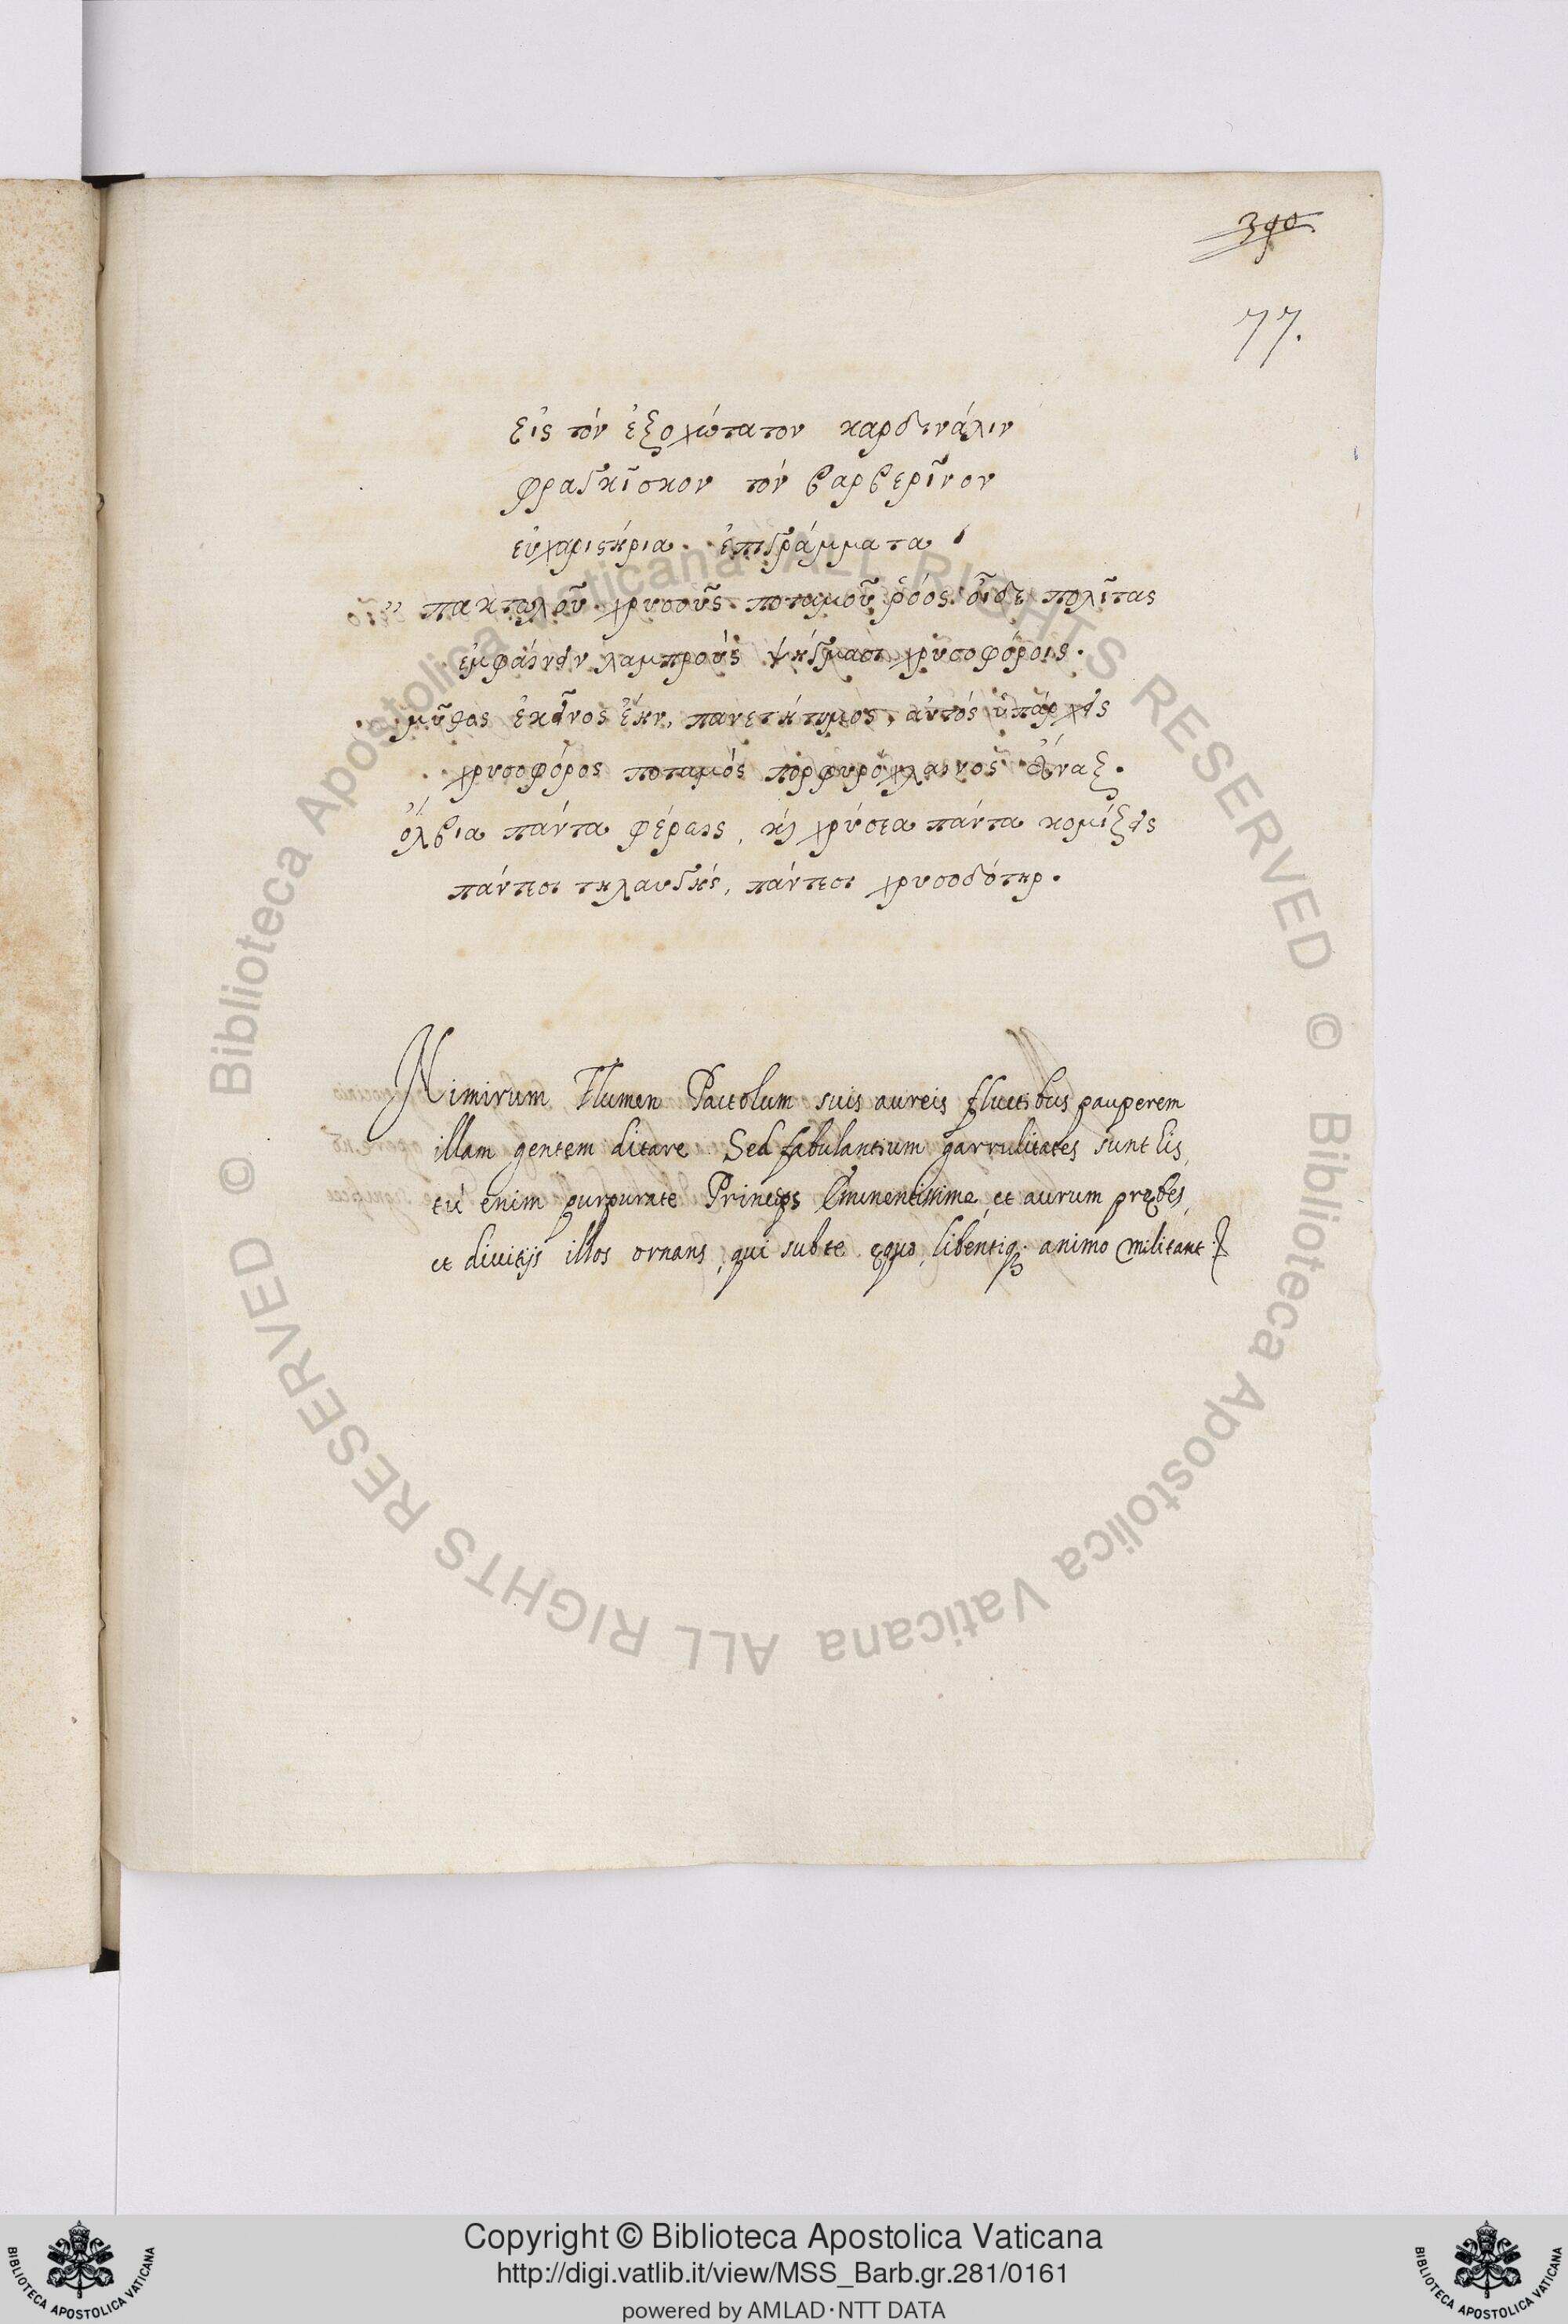 390.
77.
εἰς τόν ἐξοχώτατον καρδινάλιν
φραγκῖσκον τόν βαρβερῖνον
εὐχαριστήρια ἐπιγράμματα
πακτωλοῦ χρυσοῦς ποταμοῦ ῥόος οἶδε πολῖτας
ἐμφαίνειν λαμπρούς ψήγμασι χρυσοφόροις.
μῦθος ἐκεῖνος ἔην, πανετήτυμος, αὐτός ὑπάρχεις
χρυσοφόρος ποταμός πορφυρόχλαινος ἄναξ.
ὄλβια πάντα φέρεις, καί χρύσεα πάντα κομίζεις
πάντεσι τηλαυγής, πάντεσι χρυσοδότηρ.
Nimirum Flumen Pactolum suis aureis fluctibus pauperem
illam gentem ditare. Sed fabulantium garrulitates sunt lis,
tú enim purpurate Princeps Eminentissime, et aurum prębes,
et diuitijs illos ornans, qui sub te ęquo, libentiq; animo militant
© Biblioteca Apostolica Vaticana ALL RIGHTS RESERVED © Biblioteca Apostolica Vaticana ALL RIGHTS RESERVED
Copyright © Biblioteca Apostolica Vaticana
http://digi.vatlib.it/view/MSS_Barb.gr.281/0161
powered by AMLAD·NTT DATA
BIBLIOTECA APOSTOLICA VATICANA
BIBLIOTECA APOSTOLICA VATICANA